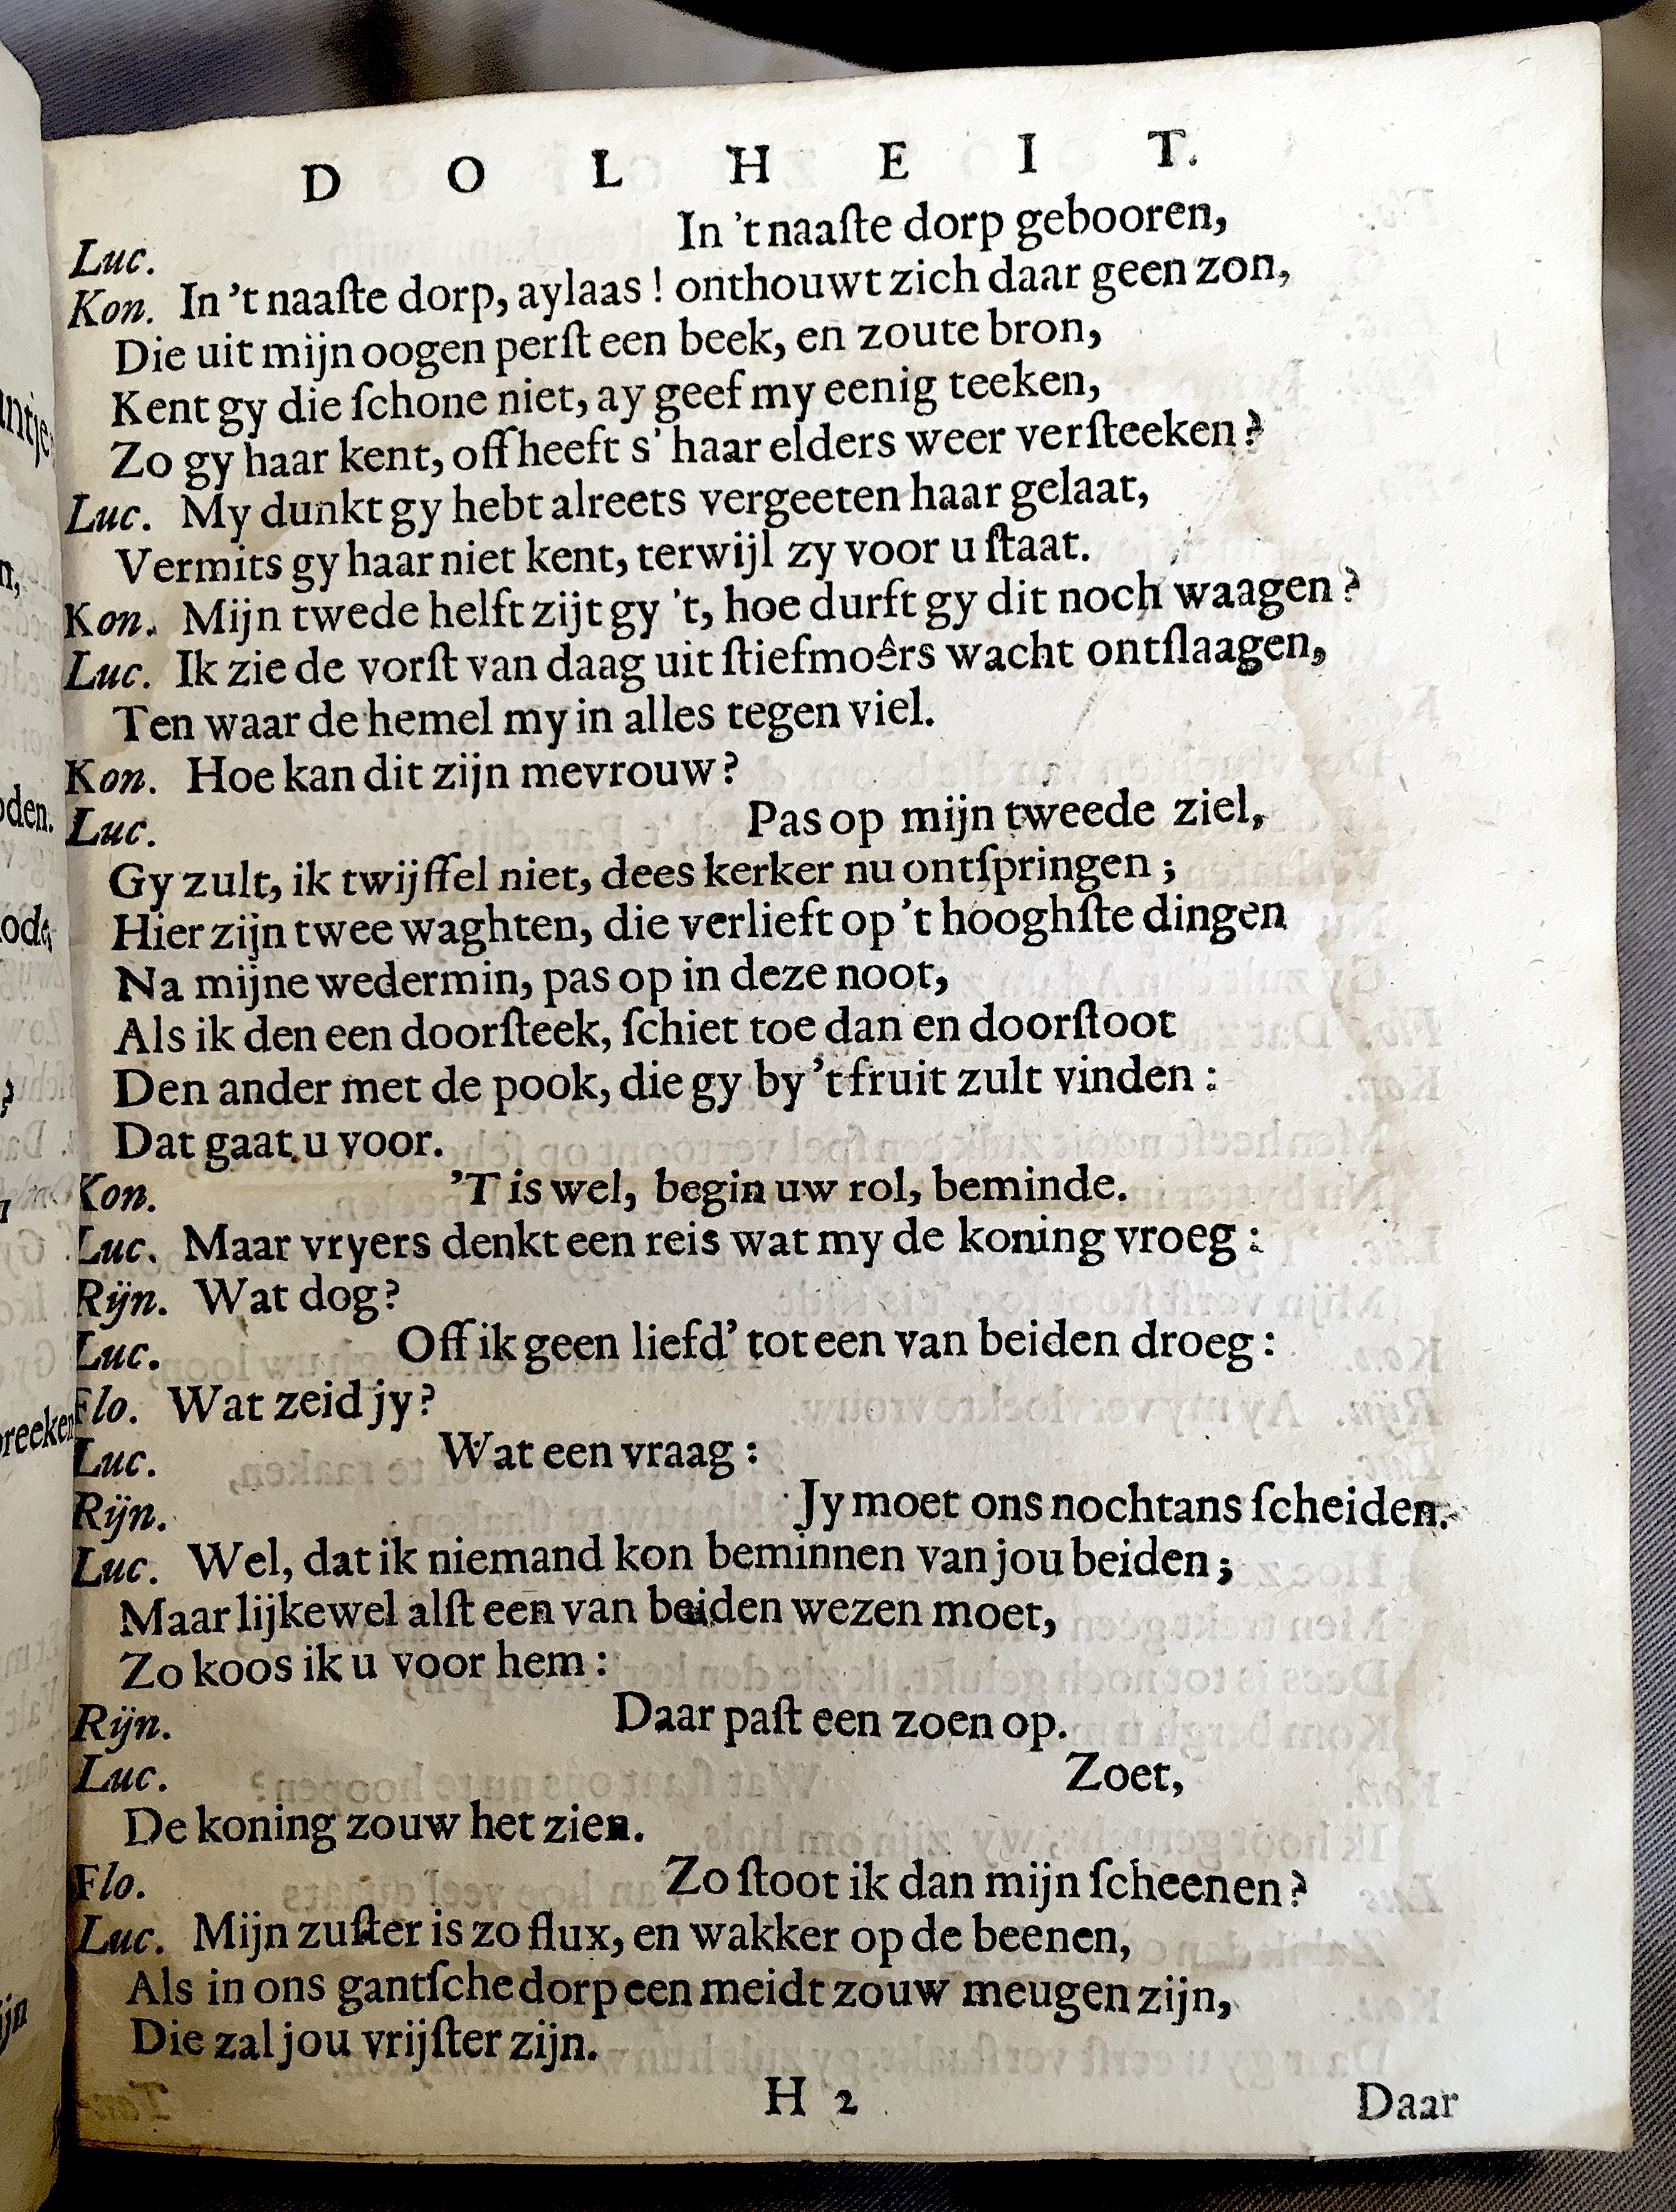 D O L H E I T.
Luc. In 't naaſte dorp gebooren,
Kon. In 't naaſte dorp, aylaas ! onthouwt zich daar geen zon,
Die uit mijn oogen perſt een beek, en zoute bron,
Kent gy die ſchone niet, ay geef my eenig teeken,
Zo gy haar kent, off heeft s' haar elders weer verſteeken?
Luc. My dunkt gy hebt alreets vergeeten haar gelaat,
Vermits gy haar niet kent, terwijl zy voor u ſtaat.
Kon. Mijn twede helft zijt gy 't, hoe durft gy dit noch waagen?
Luc. Ik zie de vorſt van daag uit ſtiefmoêrs wacht ontſlaagen,
Ten waar de hemel my in alles tegen viel.
Kon. Hoe kan dit zijn mevrouw?
Luc. Pas op mijn tweede ziel,
Gy zult, ik twijffel niet, dees kerker nu ontſpringen ;
Hier zijn twee waghten, die verlieft op 't hooghſte dingen
Na mijne wedermin, pas op in deze noot,
Als ik den een doorſteek, ſchiet toe dan en doorſtoot
Den ander met de pook, die gy by 't fruit zult vinden :
Dat gaat u voor.
Kon. 'T is wel, begin uw rol, beminde.
Luc. Maar vryers denkt een reis wat my de koning vroeg :
Rijn. Wat dog?
Luc. Off ik geen liefd' tot een van beiden droeg :
Flo. Wat zeid jy?
Luc. Wat een vraag :
Rijn. Jy moet ons nochtans ſcheiden.
Luc. Wel, dat ik niemand kon beminnen van jou beiden ;
Maar lijkewel alſt een van beiden wezen moet,
Zo koos ik u voor hem :
Rijn. Daar paſt een zoen op.
Luc. Zoet,
De koning zouw het zien.
Flo. Zo ſtoot ik dan mijn ſcheenen?
Luc. Mijn zuſter is zo flux, en wakker op de beenen,
Als in ons gantſche dorp een meidt zouw meugen zijn,
Die zal jou vrijſter zijn.
H 2 Daar